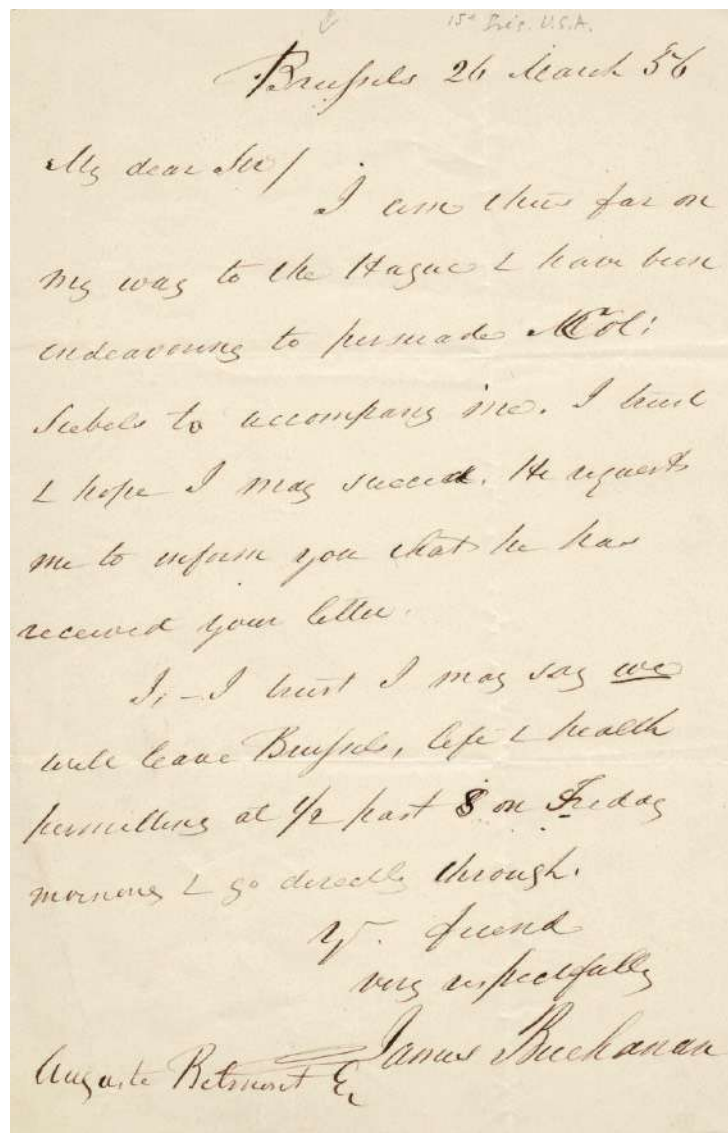 15th Pres. U.S.A.
Brussels 26 March 56
My dear Sir/
I am thus far on
my way to the Hague & have been
endeavouring to persuade Col:
Siebels to accompany me. I trust
& hope I may succeed. He requests
me to inform you that he has
received your letter.
I, – I trust I may say we
will leave Brussels, life & health
permitting at 1/2 past 8 on Friday
morning & go directly through.
Yr. friend
very respectfully
James Buchanan
Auguste Belmont Eq